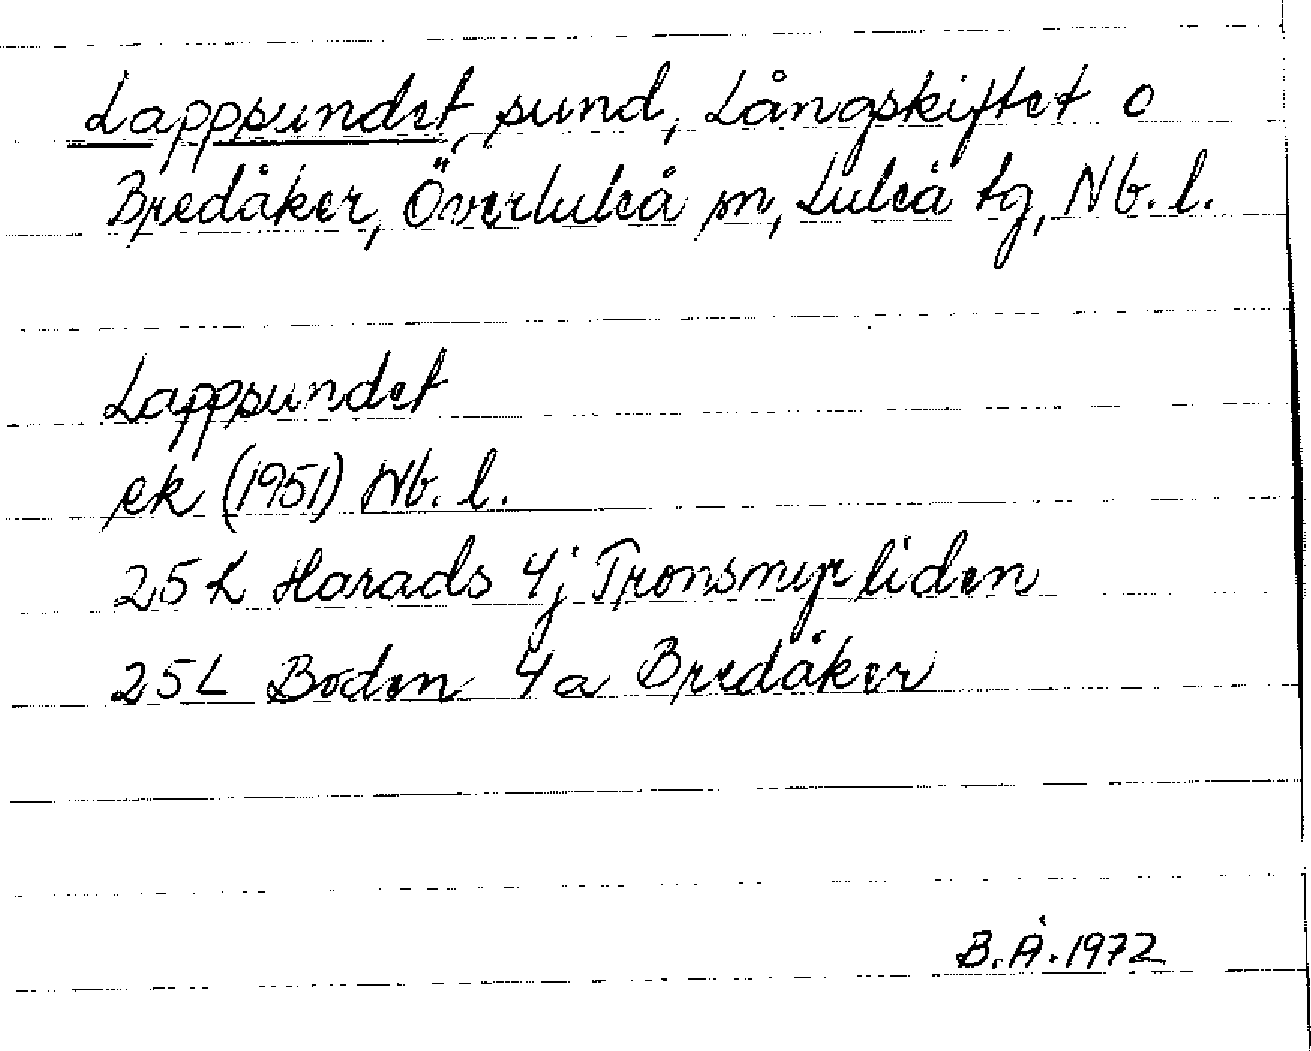 Lappsundet, sund, Långskiftet o
Bredåker, Överluleå sn, Luleå tg, Nb. l.
Lappsundet
ek (1951) Nb. l.
25 K Harads 4j Tronsmyrliden
25 L Boden 4a Bredåker
B.Å. 1972